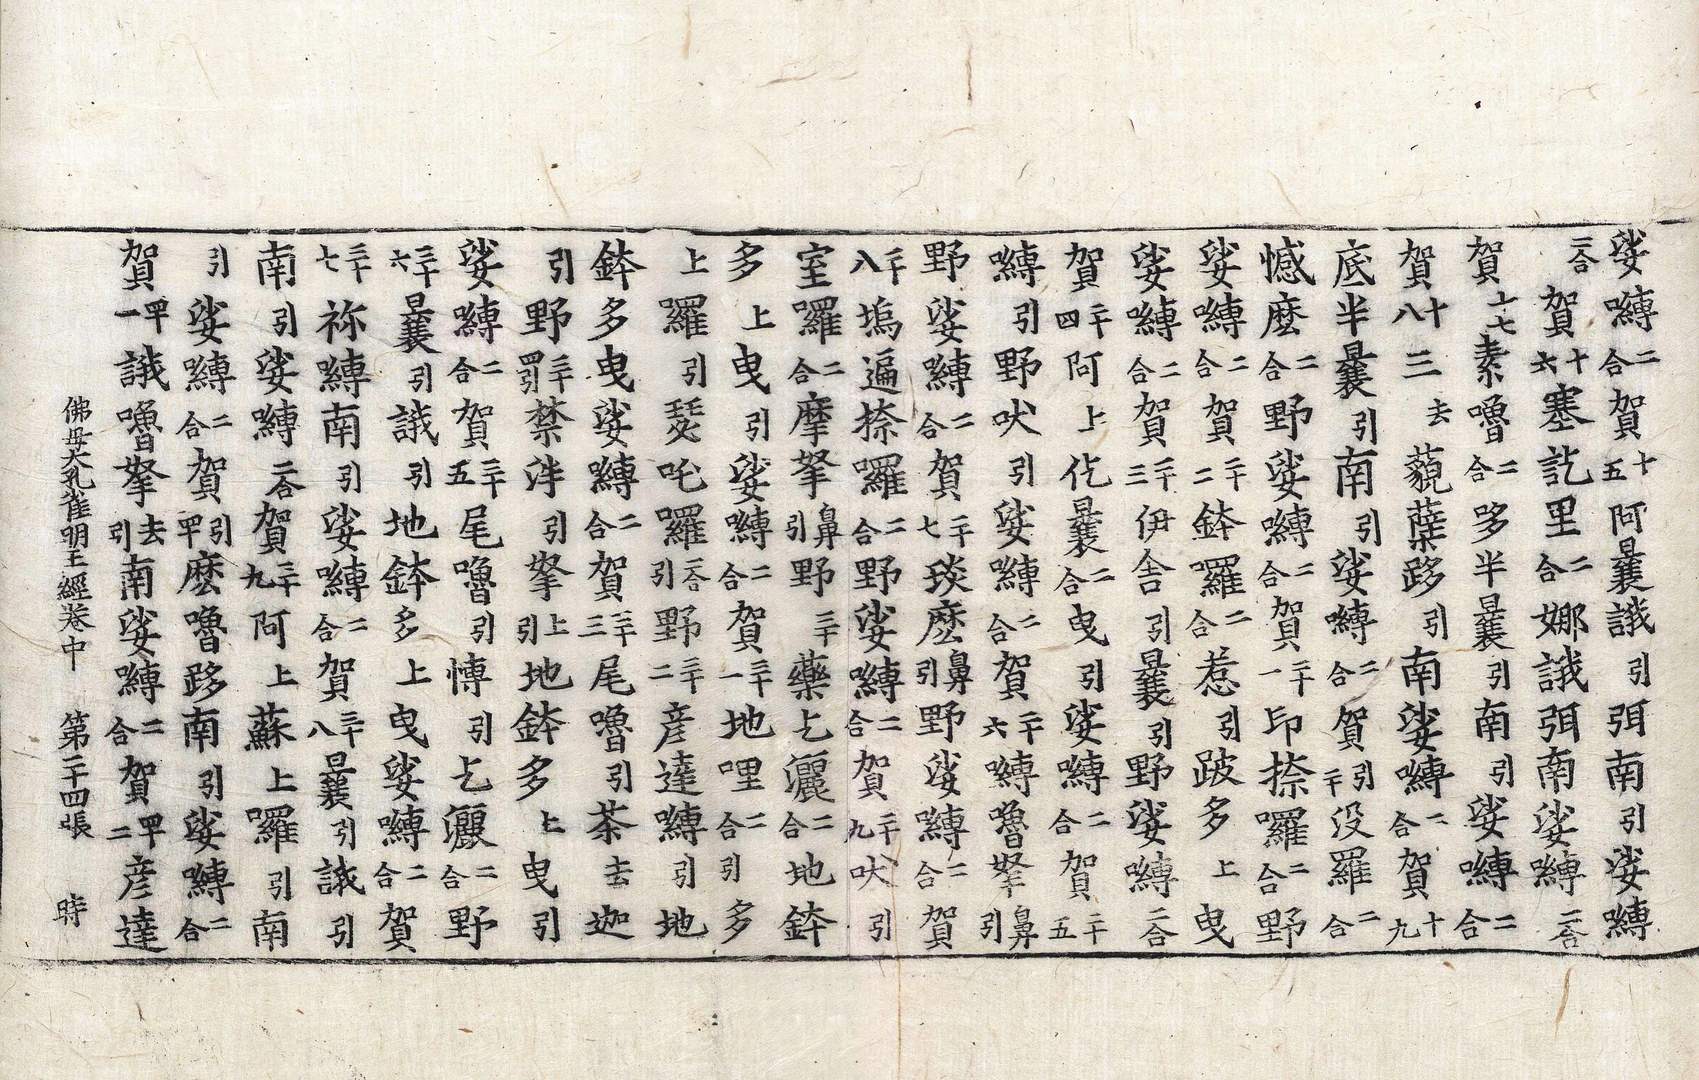 娑嚩二合賀十五阿曩誐引弭南引娑嚩
二合賀十六塞訖里二合娜誐弭南娑嚩二合
賀十七素嚕二合哆半曩引南引娑嚩二合
賀十八三去藐蘖跢引南娑嚩二合賀十九
底半曩引南引娑嚩二合賀引二十没羅二合
憾麼二合野娑嚩二合賀二十一印捺囉二合野
娑嚩二合賀二十二鉢囉二合惹引跛多上曳
娑嚩二合賀二十三伊舍引曩引野娑嚩二合
賀二十四阿上仡曩二合曳引娑嚩二合賀二十五
嚩引野吠引娑嚩二合賀二十六嚩嚕拏鼻引
野娑嚩二合賀二十七琰麼鼻引野娑嚩二合賀
二十八塢遍捺囉二合野娑嚩二合賀二十九吠引
室囉二合摩拏鼻引野三十藥乞灑二合地鉢
多上曳引娑嚩二合賀三十一地哩二合引多
上羅引瑟吒囉二合引野三十二彦達嚩引地
鉢多曳娑嚩二合賀三十三尾嚕引荼去迦
引野三十四引禁泮引拏上引地鉢多上曳引
娑嚩二合賀三十五尾嚕引愽引乞灑二合野
三十六曩引誐引地鉢多上曳娑嚩二合賀
三十七祢嚩南引娑嚩二合賀三十八曩引誐引
南引娑嚩二合賀三十九阿上蘇上囉引南
引娑嚩二合賀引四十麼嚕跢南引娑嚩二合
賀四十一誐嚕拏去引南娑嚩二合賀四十二彦達
佛母大孔雀明王經卷中　第二十四張　時